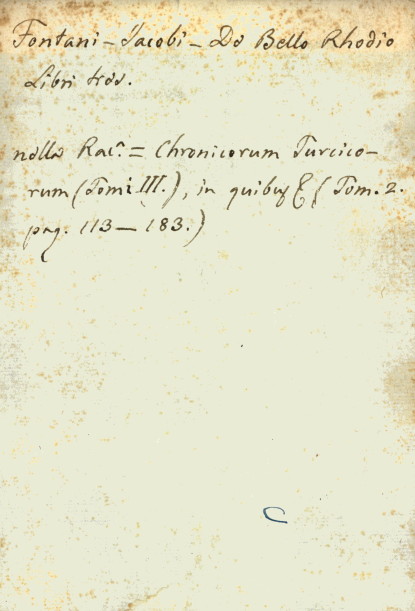 Fontani - Jacobi - De Bello Rhodio
Libri tres.
nella Rac.ᵃ = Chronicorum Turcico-
rum (Tomi III.), in quibus & (Tom. 2.
pag. 113 — 183.)
C